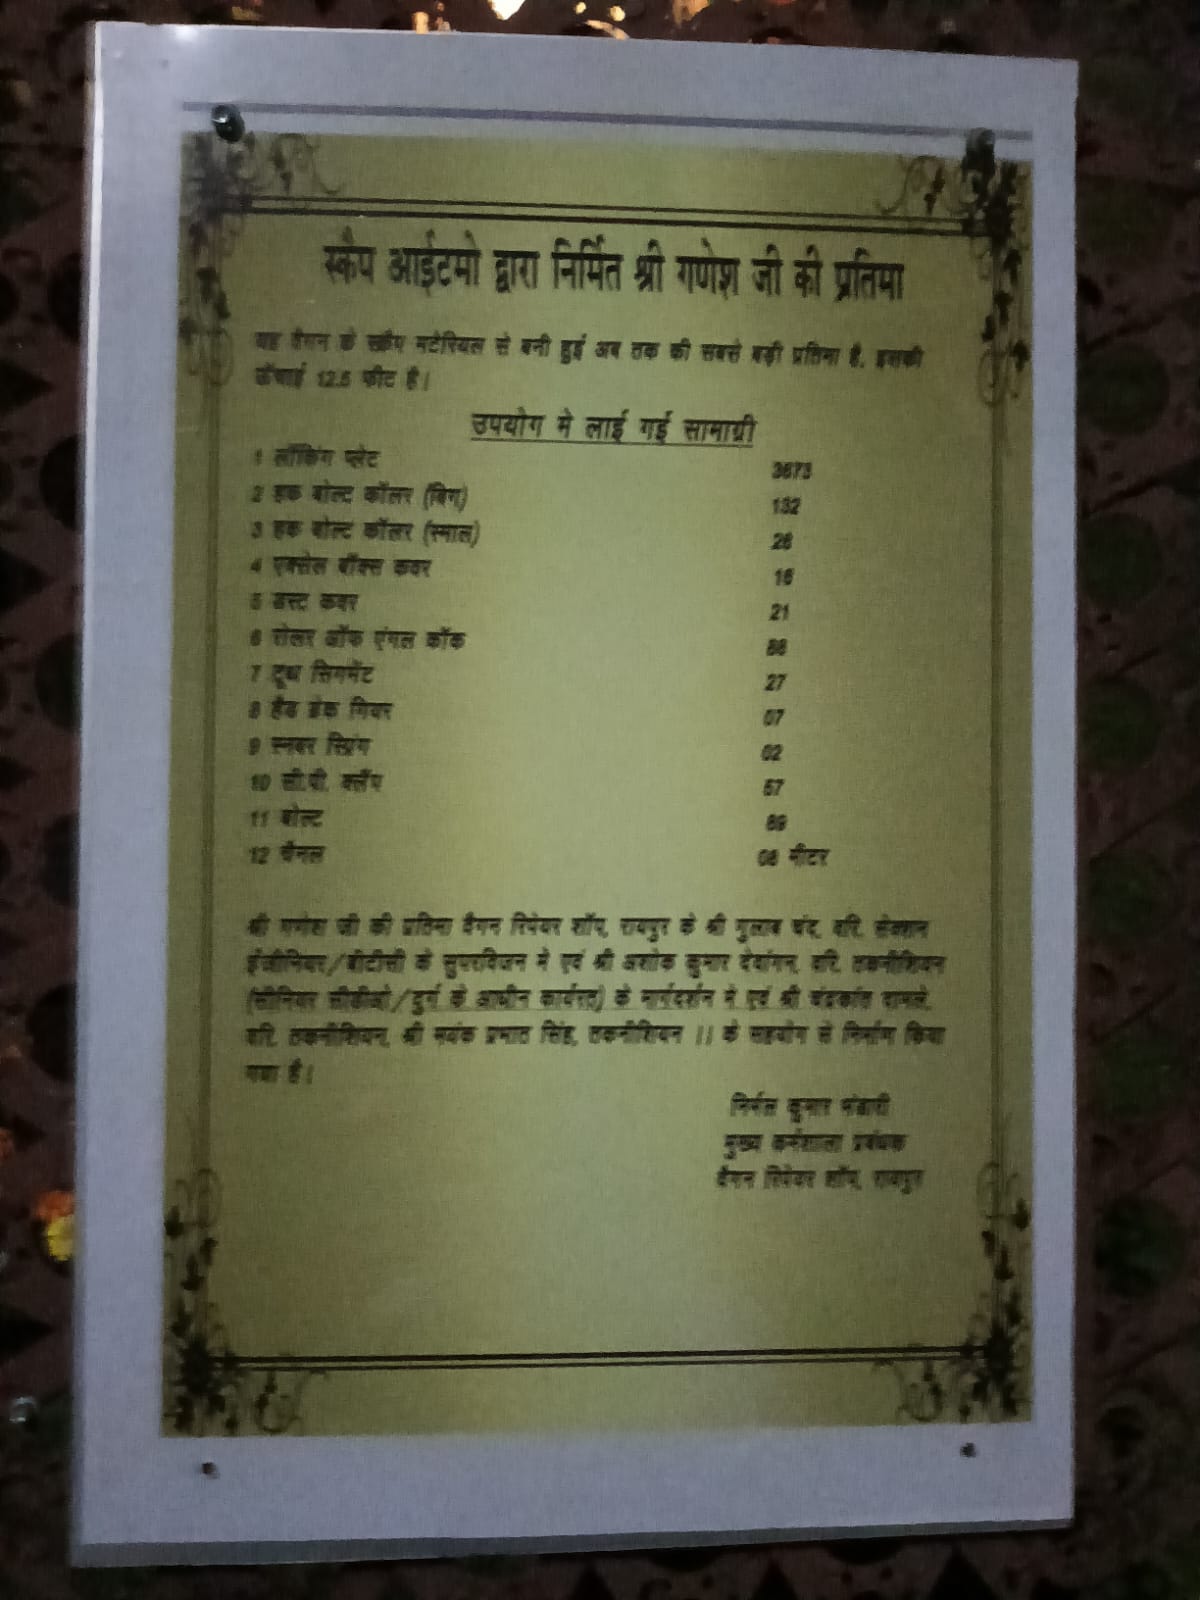 स्कैप आईटमो द्वारा निर्मित श्री गणेश जी की प्रतिमा
यह वैगन के स्क्रैप मटेरियल से बनी हुई अब तक की सबसे बड़ी प्रतिमा है, इसकी
ऊँचाई 12.5 फीट है।
उपयोग मे लाई गई सामाग्री
1 लॉकिंग प्लेट 3673
2 हक बोल्ट कॉलर (बिग) 132
3 हक बोल्ट कॉलर (स्माल) 26
4 एक्सेल बॉक्स कवर 16
5 डस्ट कवर 21
6 रोलर ऑफ एंगल कॉक
7 टूथ सिगमेंट 27
8 हैंड ब्रेक गियर 07
9 स्नबर स्प्रिंग 02
10 सी.पी. क्लैंप 57
11 बोल्ट
12 चैनल 08 मीटर
श्री गणेश जी की प्रतिमा वैगन रिपेयर शॉप, रायपुर के श्री गुलाब चंद, वरि. सेक्शन
इंजीनियर/बीटीसी के सुपरविजन मे एवं श्री अशोक कुमार देवांगन, वरि. तकनीशियन
(सीनियर सीडीओ/दुर्ग के आधीन कार्यरत) के मार्गदर्शन मे एवं श्री चंद्रकांत दामले,
वरि. तकनीशियन, श्री मयंक प्रभात सिंह, तकनीशियन ।। के सहयोग से निर्माण किया
गया है।
निर्मल कुमार भंडारी
मुख्य कर्मशाला प्रबंधक
वैगन रिपेयर शॉप, रायपुर